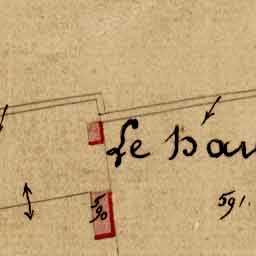 Le hau
590
591.